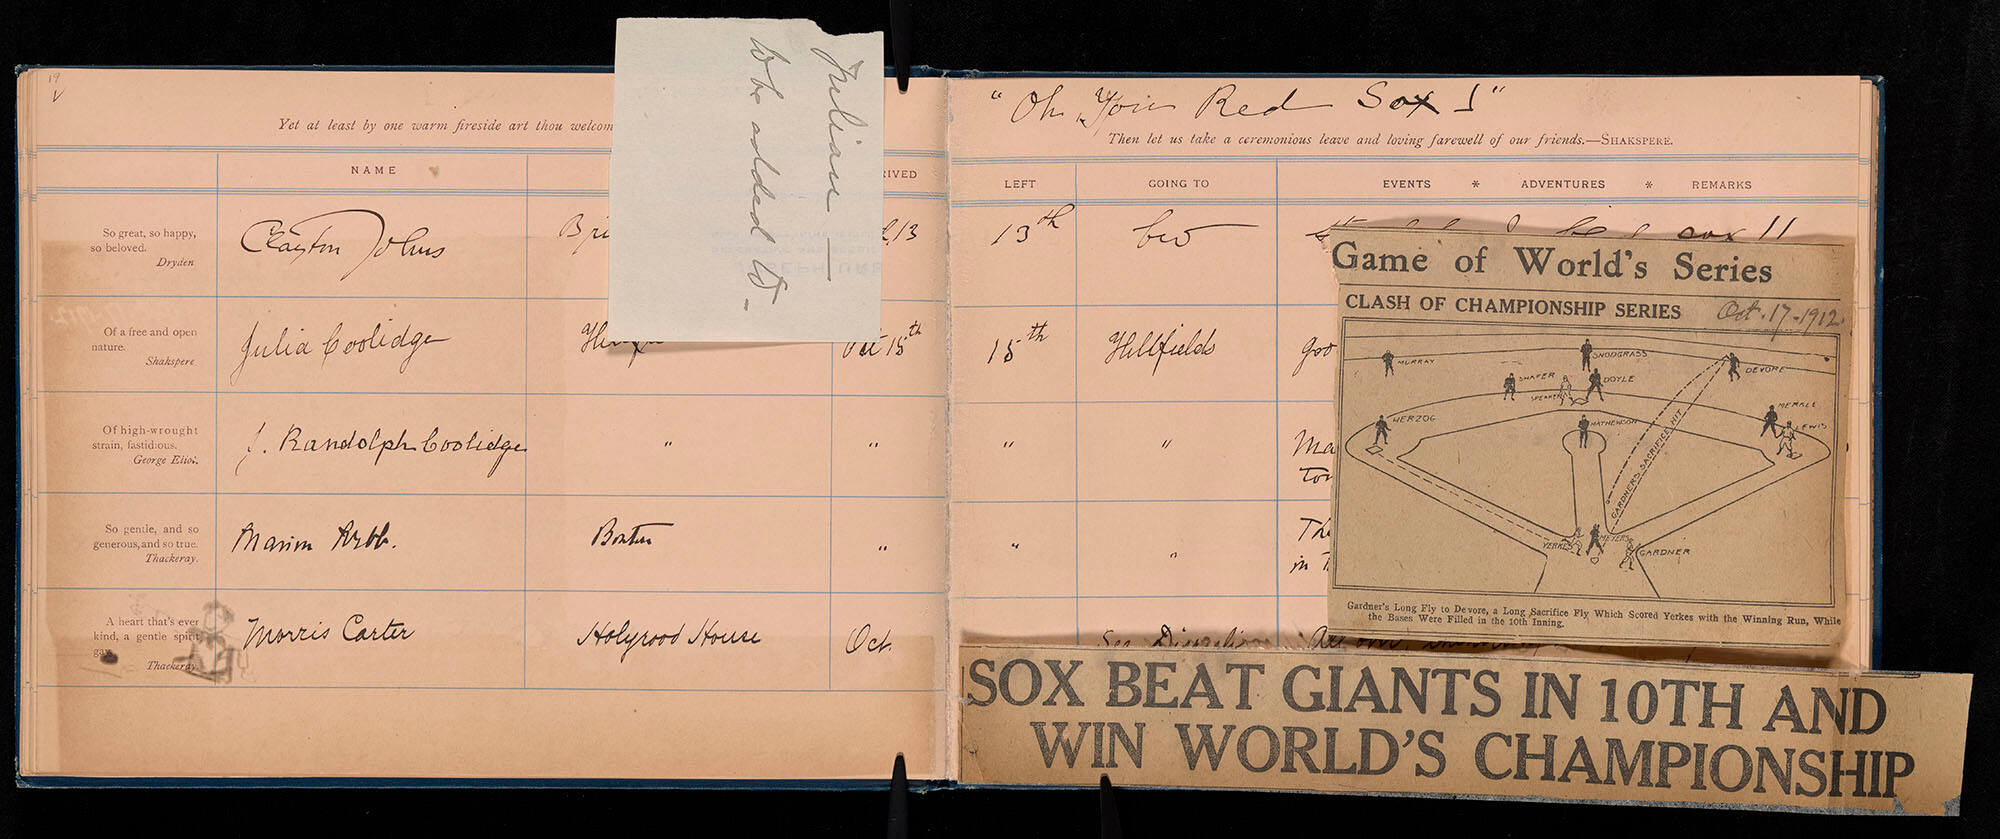 19
Yet at least by one warm fireside art thou welcom
NAME
RIVED
So great, so happy,
so beloved.
Dryden
Clayton Johns
Bri
13
Of a free and open
nature.
Shakspere
Julia Coolidge
Oct 15th
Of high-wrought
strain, fastidious.
George Eliot.
J. Randolph Coolidge
" "
So gentle, and so
generous, and so true.
Thackeray.
Boston
"
A heart that's ever
kind, a gentle spirit
gay,
Thackeray.
Morris Carter
Holyrood House
Oct.
Julian —
to be added to -
"Oh, You Red Sox!"
Then let us take a ceremonious leave and loving farewell of our friends.—SHAKSPERE.
LEFT
GOING TO
EVENTS * ADVENTURES * REMARKS
13th
sox!!
15th
Hillfields
Goo
" "
Ma
" "
The
in
Game of World's Series
CLASH OF CHAMPIONSHIP SERIES
Oct. 17-1912.
MURRAY
SNODGRASS
DEVORE
SHAFER
DOYLE
SPEAKER
HERZOG
MATHEWSON
MERKLE
LEWIS
GARDNER'S SACRIFICE HIT
YERKES
MEYERS
GARDNER
Gardner's Long Fly to Devore, a Long Sacrifice Fly Which Scored Yerkes with the Winning Run, While
the Bases Were Filled in the 10th Inning.
SOX BEAT GIANTS IN 10TH AND
WIN WORLD'S CHAMPIONSHIP